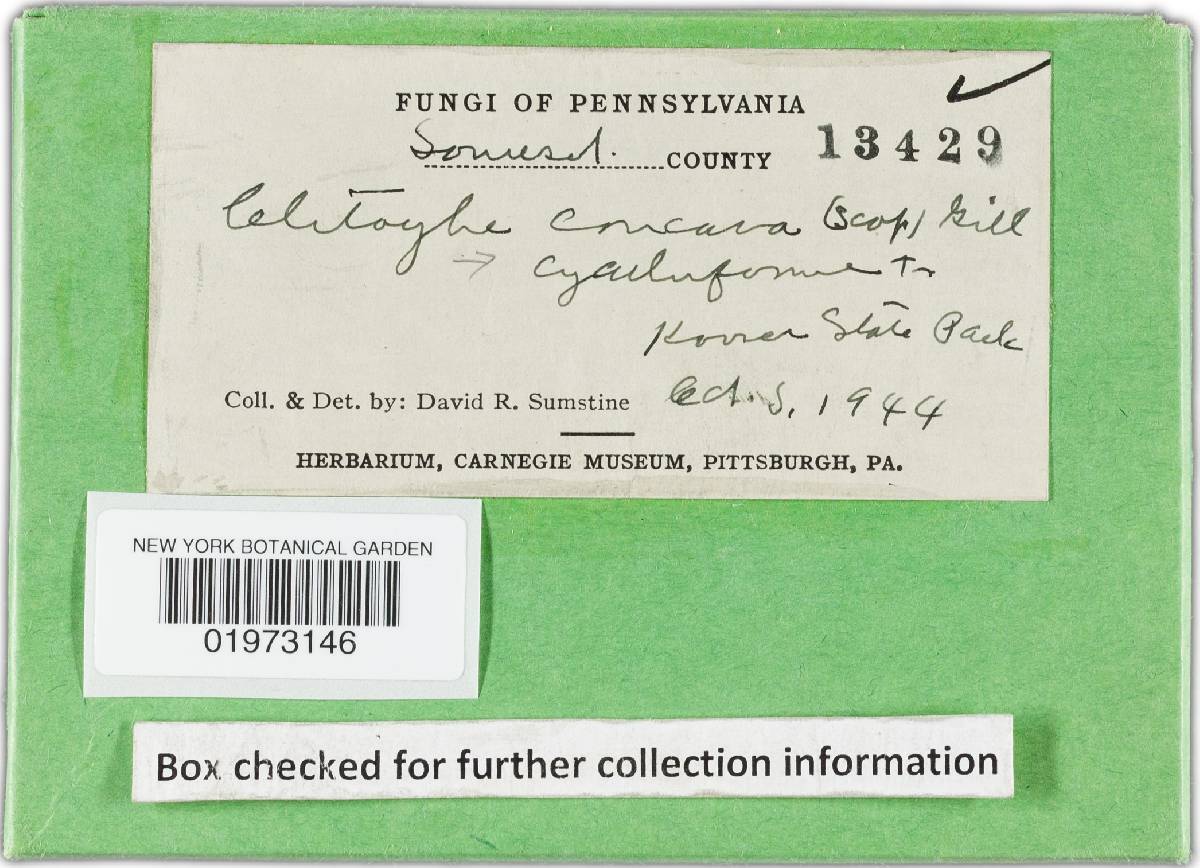 FUNGI OF PENNSYLVANIA
Somerset. COUNTY 13429
Clitocybe concava (Scop) Gill
→ cyathiforme Fr
Kooser State Park
Coll. & Det. by: David R. Sumstine Oct. 5, 1944
HERBARIUM, CARNEGIE MUSEUM, PITTSBURGH, PA.
NEW YORK BOTANICAL GARDEN
01973146
Box checked for further collection information